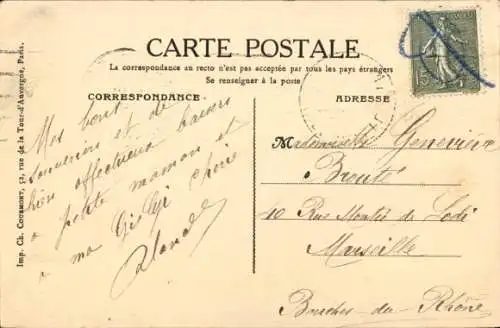 CARTE POSTALE
La correspondance au recto n'est pas acceptée par tous les pays étrangers
Se renseigner à la poste
CORRESPONDANCE
ADRESSE
Imp. Ch. Courmont, 52, rue de la Tour-d'Auvergne, Paris.
Mes bons
souvenirs et de
bien affectueux baisers
a petite maman et
a ma chérie
Mademoiselle Geneviève
10 Rue de Lodi
Marseille
Bouches du Rhône